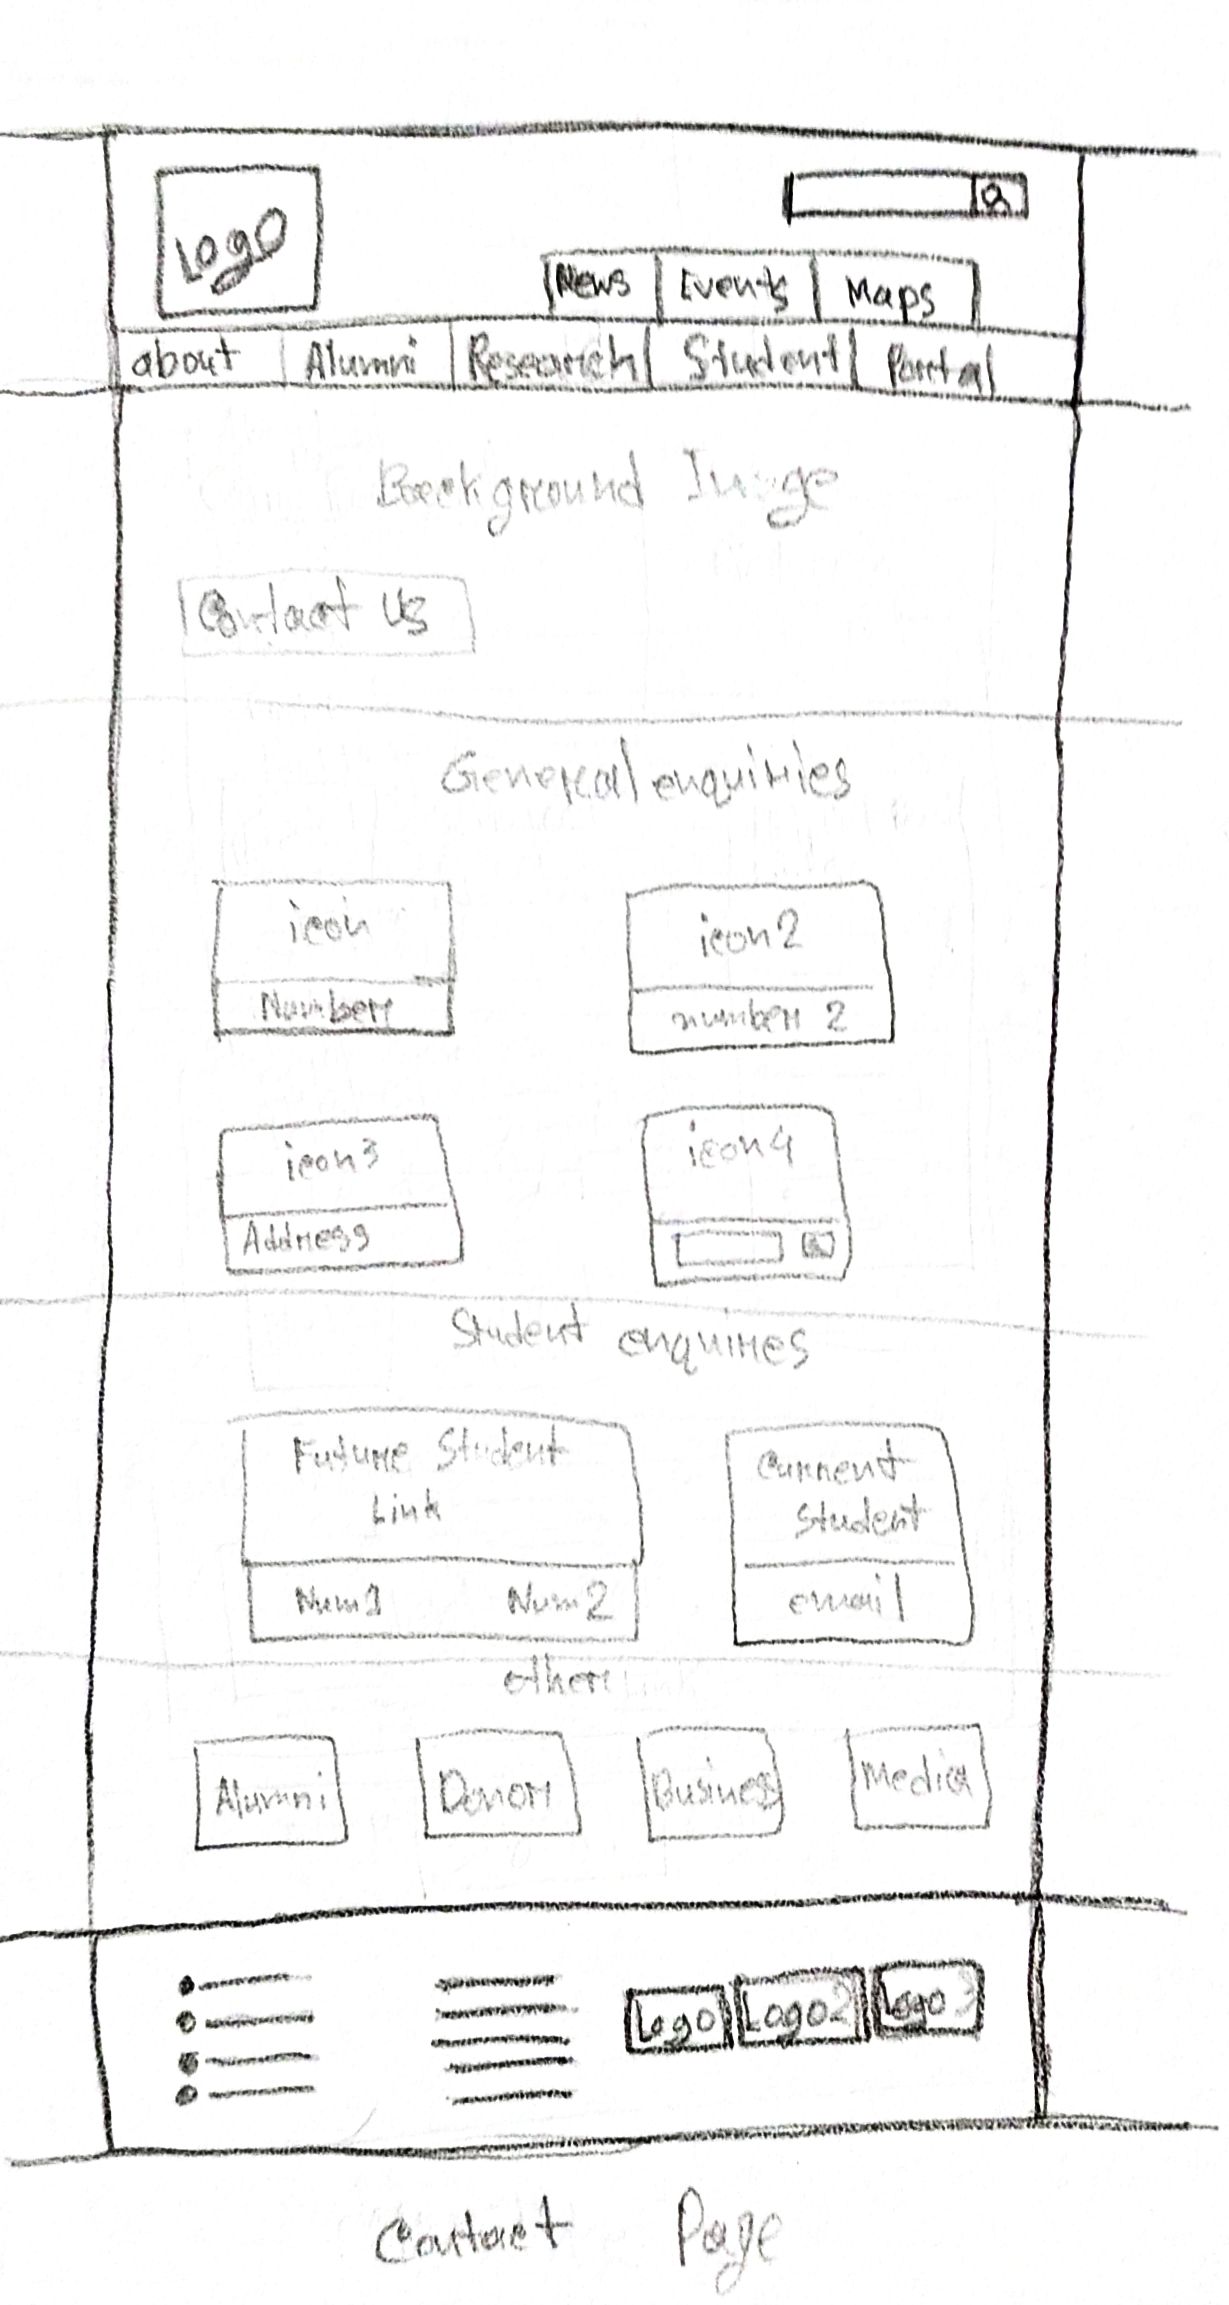 Logo
News Events Maps
about Alumni Research Student Portal
Background Image
Contact Us
General enquiries
icon icon2
Number number 2
icon3 icon4
Address
Student enquires
Future Student Current
Link Student
Num1 Num2 email
other
Alumni Donor Business Media
Logo Logo2 Logo3
Contact Page